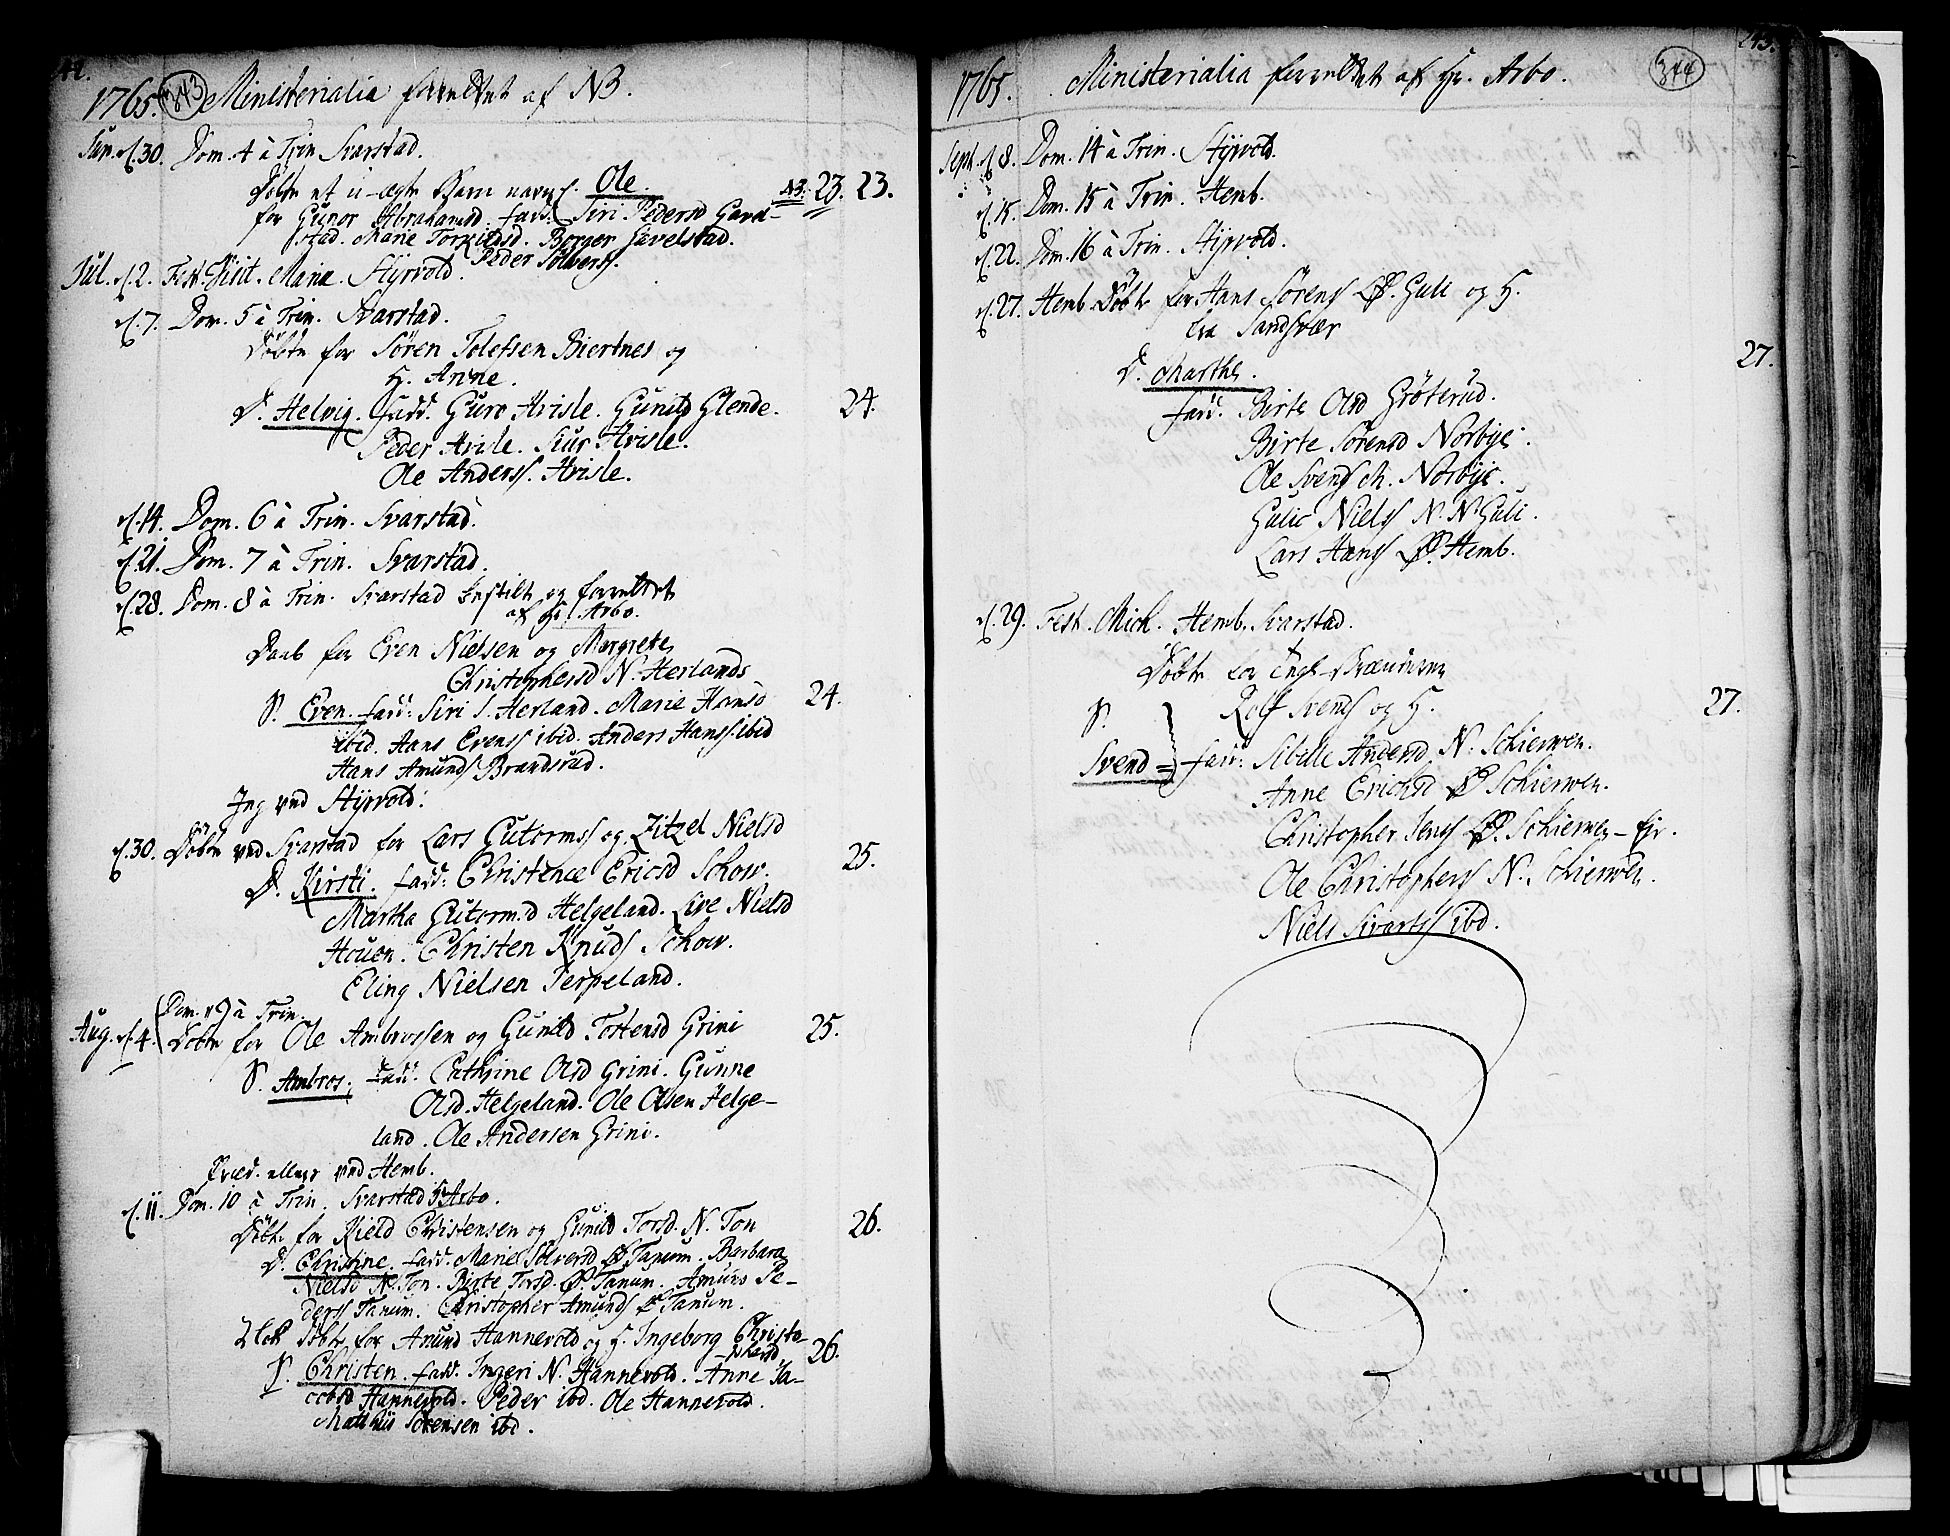 1765. 343 Ministerialia forrettet af NB.
Jun. d. 30. Dom. 4 à Trin Svarstad.
Døbte et u-ægte Barn navnl. Ole. NB. 23. 23.
for Gunor Abrahamsd. fadd: Siri Pedersd Gavel-
stad. Marie Torkildsd. Borger Gavelstad.
Peder Solverss.
Jul. d. 2. Fest. Visit. Mariæ. Styrvold.
d. 7. Dom. 5 à Trin. Svarstad.
Døbte for Søren Tolefsen Biertnes og
H. Anne.
D. Helvig. fadd. Guro Hvisle. Gunild Glende. 24.
Peder Hvisle. Siur Hvisle.
Ole Anderss. Hvisle.
d. 14. Dom. 6 à Trin. Svarstad.
d. 21. Dom. 7 à Trin. Svarstad.
d. 28. Dom. 8 à Trin. Svarstad bestilt og forrettet
af Hr. Arbo.
Daab for Even Nielsen og Margrete
Christophersd N. Herlands
S. Even. fadd: Siri S. Herland. Marie Hansd 24.
ibid. Hans Evenss ibid. Anders Hanss. ibid
Hans Amunds Brandsrud.
Jeg ved Styrvold.
d. 30. Døbte ved Svarstad for Lars Gutormss og Zitzel Nielsd
D. Kirsti. fadd: Christence Ericsd Schow. 25.
Martha Gutormsd Helgeland. Live Nielsd
Houen. Christen Knuds Schow.
Eling Nielsen Terpeland.
Dom. 9 à Trin.
Aug. d. 4. Døbte for Ole Ambrossen og Gunild Tostensd Grini 25.
S. Ambros; fadd. Cathrine Olsd Grini. Gunne
Olsd. Helgeland. Ole Olsen Helge-
land. Ole Andersen Grini.
Præd. ellers ved Hemb.
d. 11. Dom. 10 à Trin. Svarstad Hr Arbo.
Døbte for Kield Christensen og Gunild Torsd. N. Ton 26.
D. Christine. fadd. Marie Solversd Ø Tanum. Barbara
Nielsd N. Ton. Birte Torsd. Ø Tanum. Amund Pe-
derss Tanum. Christopher Amunds Ø Tanum.
Døbte for Amund Hannevold og H. Ingeborg Christo-
phersd 26.
S. Christen. fadd. Ingeri N. Hannevold. Anne Ja-
cobsd Hannevold. Peder ibd. Ole Hannevold.
Matthis Sørensen ibd.
1765. Ministerialia forrettet af Hr. Arbo. 344 243.
Sept. d. 8. Dom. 14 à Trin. Styrvold.
d. 15. Dom. 15 à Trin. Hemb.
d. 22. Dom. 16 à Trin. Styrvold.
d. 27. Hemb. Døbte for Hans Sørens Ø. Guli og H.
fra Sandsvær
D. Marthe. 27.
fadd. Birte Olsd Grøterud.
Birte Sørensd Norbye.
Ole Svends M. Norbye.
Gulic Niels N. N Guli.
Lars Hans Ø. Hemb.
d. 29. Fest. Mich. Hemb. Svarstad.
Døbte for
S. Rolf Svends og H. 27.
Svend = fadd: Sibille Andersd N. Schierven.
Anne Erichsd Ø Schierven.
Christopher Jens Ø. Schierven - Ejr.
Ole Christopherss N. Schierven.
Niels Sivertss ibd.